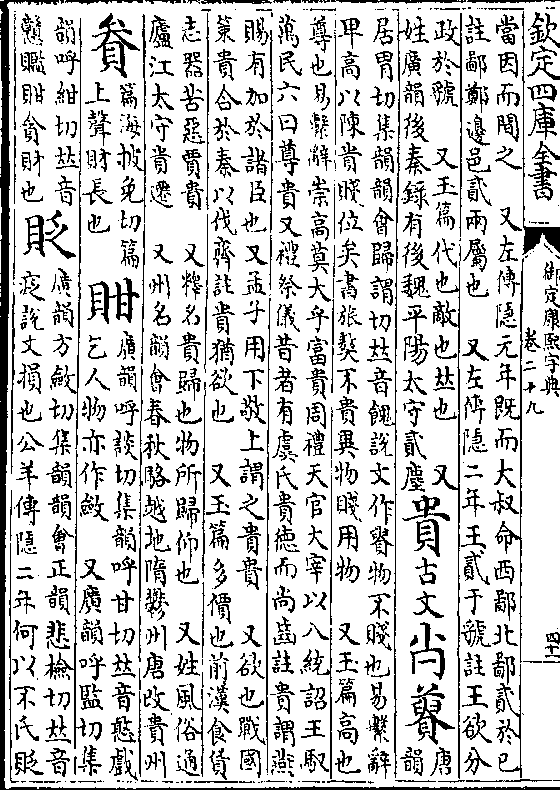 欽定四庫全書
御定康熙字典
卷二十九
四十一
當因而閒之　又左傳隱元年既而大叔命西鄙北鄙貳於已
註鄙鄭邊邑貳兩屬也　又左傳隱二年王貳于虢註王欲分
政於虢　又玉篇代也敵也𠀤也　又
姓廣韻後秦錄有後魏平陽太守貳塵
貴古文㒳䝿唐韻
居胃切集韻韻會歸謂切𠀤音餽說文作䝿物不賤也易繫辭
卑高以陳貴賤位矣書旅獒不貴異物賤用物　又玉篇高也
尊也易繫辭崇高莫大乎富貴周禮天官大宰以八統詔王馭
萬民六曰尊貴又禮祭儀昔者有虞氏貴德而尚齒註貴謂燕
賜有加於諸臣也又孟子用下敬上謂之貴貴　又欲也戰國
策貴合於秦以伐齊註貴猶欲也　又玉篇多價也前漢食貨
志器苦惡賈貴　又釋名貴歸也物所歸仰也　又姓風俗通
廬江太守貴遷　又州名韻會春秋駱越地隋鬱州唐改貴州
篇海披免切篇
上聲財長也
廣韻呼談切集韻呼甘切𠀤音憨戲
乞人物亦作㪘　又廣韻呼監切集
韻呼紺切𠀤音
財也
貶廣韻方斂切集韻韻會正韻悲檢切𠀤音
窆說文損也公羊傳隱二年何以不氏貶